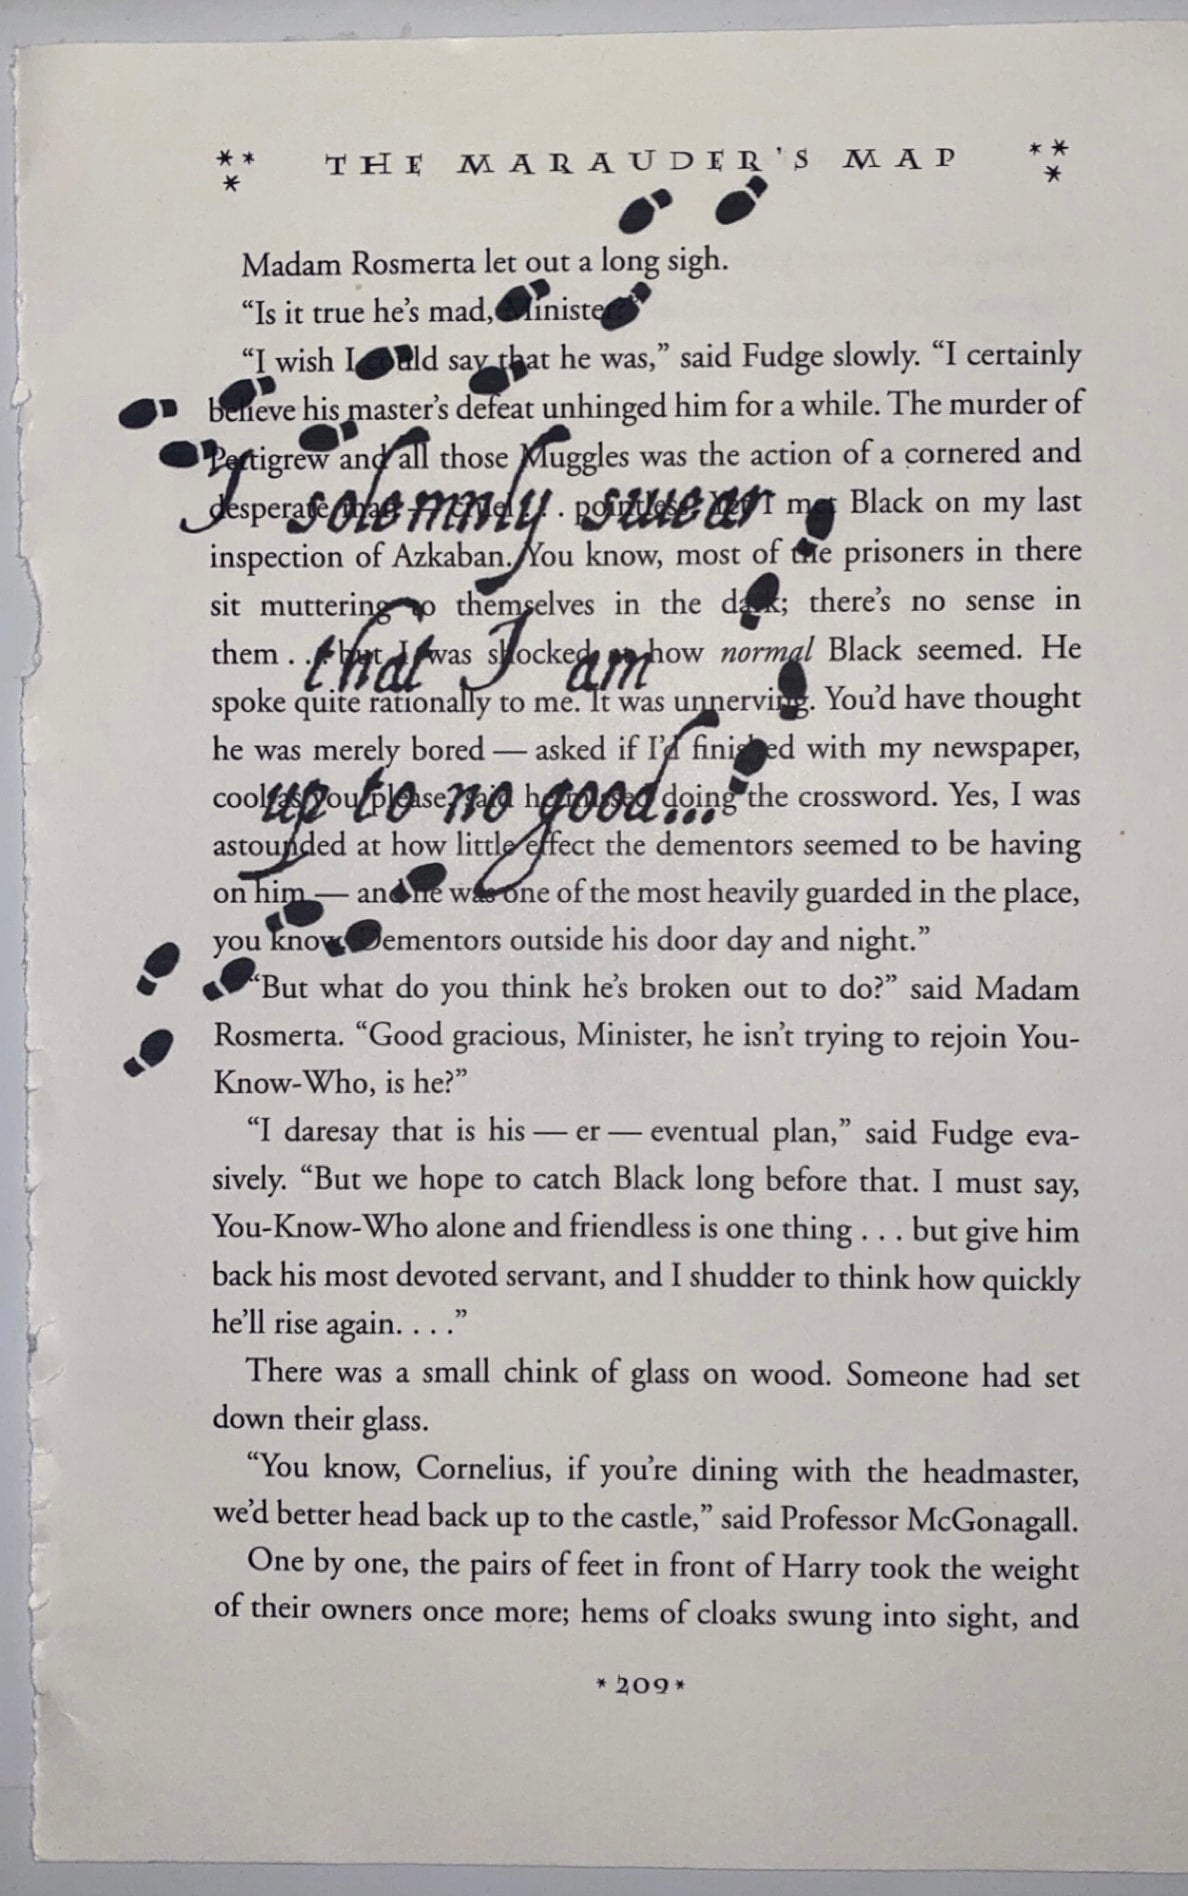 THE MARAUDER'S MAP
Madam Rosmerta let out a long sigh.
“Is it true he’s mad, Minister?”
“I wish I could say that he was,” said Fudge slowly. “I certainly
believe his master’s defeat unhinged him for a while. The murder of
Pettigrew and all those Muggles was the action of a cornered and
desperate man — cruel . . . pointless. Yet I met Black on my last
I solemnly swear
inspection of Azkaban. You know, most of the prisoners in there
sit muttering to themselves in the dark; there’s no sense in
them . . . but I was shocked at how normal Black seemed. He
that I am
spoke quite rationally to me. It was unnerving. You’d have thought
he was merely bored — asked if I’d finished with my newspaper,
cool as you please, said he missed doing the crossword. Yes, I was
up to no good...
astounded at how little effect the dementors seemed to be having
on him — and he was one of the most heavily guarded in the place,
you know. Dementors outside his door day and night.”
“But what do you think he’s broken out to do?” said Madam
Rosmerta. “Good gracious, Minister, he isn’t trying to rejoin You-
Know-Who, is he?”
“I daresay that is his — er — eventual plan,” said Fudge eva-
sively. “But we hope to catch Black long before that. I must say,
You-Know-Who alone and friendless is one thing . . . but give him
back his most devoted servant, and I shudder to think how quickly
he’ll rise again. . . .”
There was a small chink of glass on wood. Someone had set
down their glass.
“You know, Cornelius, if you’re dining with the headmaster,
we’d better head back up to the castle,” said Professor McGonagall.
One by one, the pairs of feet in front of Harry took the weight
of their owners once more; hems of cloaks swung into sight, and
*209*